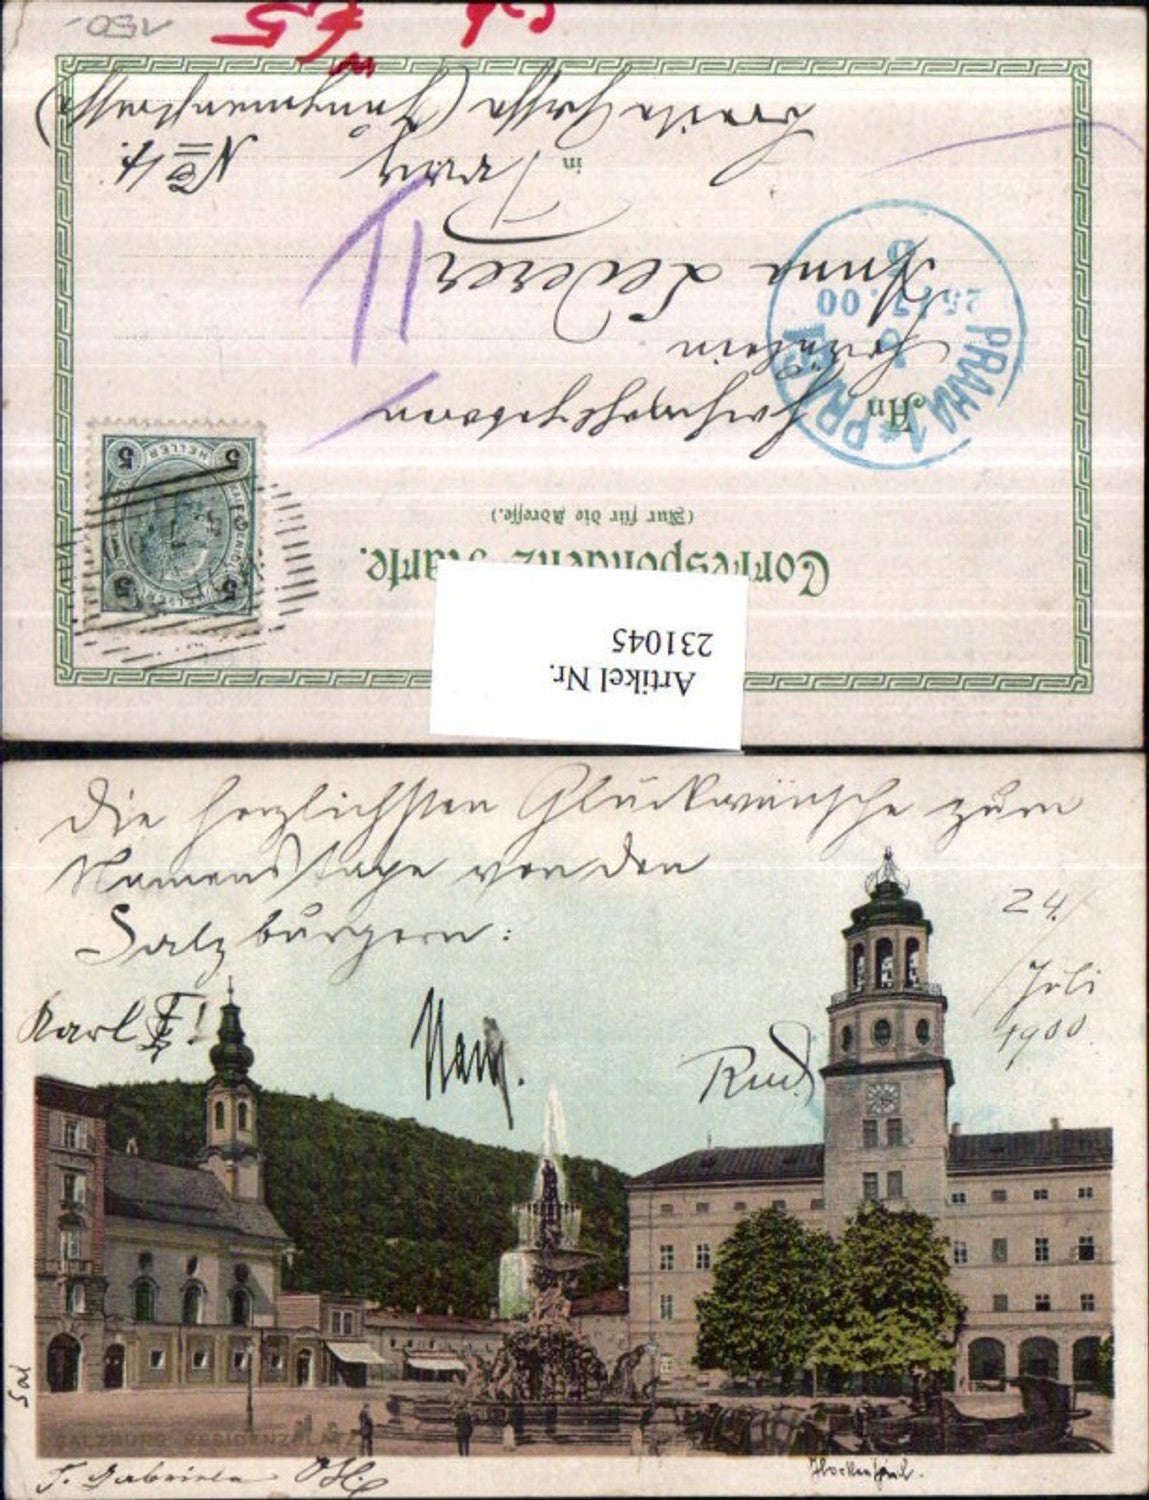 150,-
Correspondenz-Karte.
(Nur für die Adresse.)
An
Hochwohlgeboren
Fräulein
Anna Lederer
in Prag
Breite Gasse (Jungmannstrasse)
No 4.
PRAHA 1 * PRAG
25. 7. 00
5
HELLER
Artikel Nr.
231045
Die herzlichsten Glückwünsche zum
Namenstage von den
Salzburgern:
24./
Juli
1900.
Karl
Rud.
Sal
SALZBURG RESIDENZPLATZ
Glockenspiel.